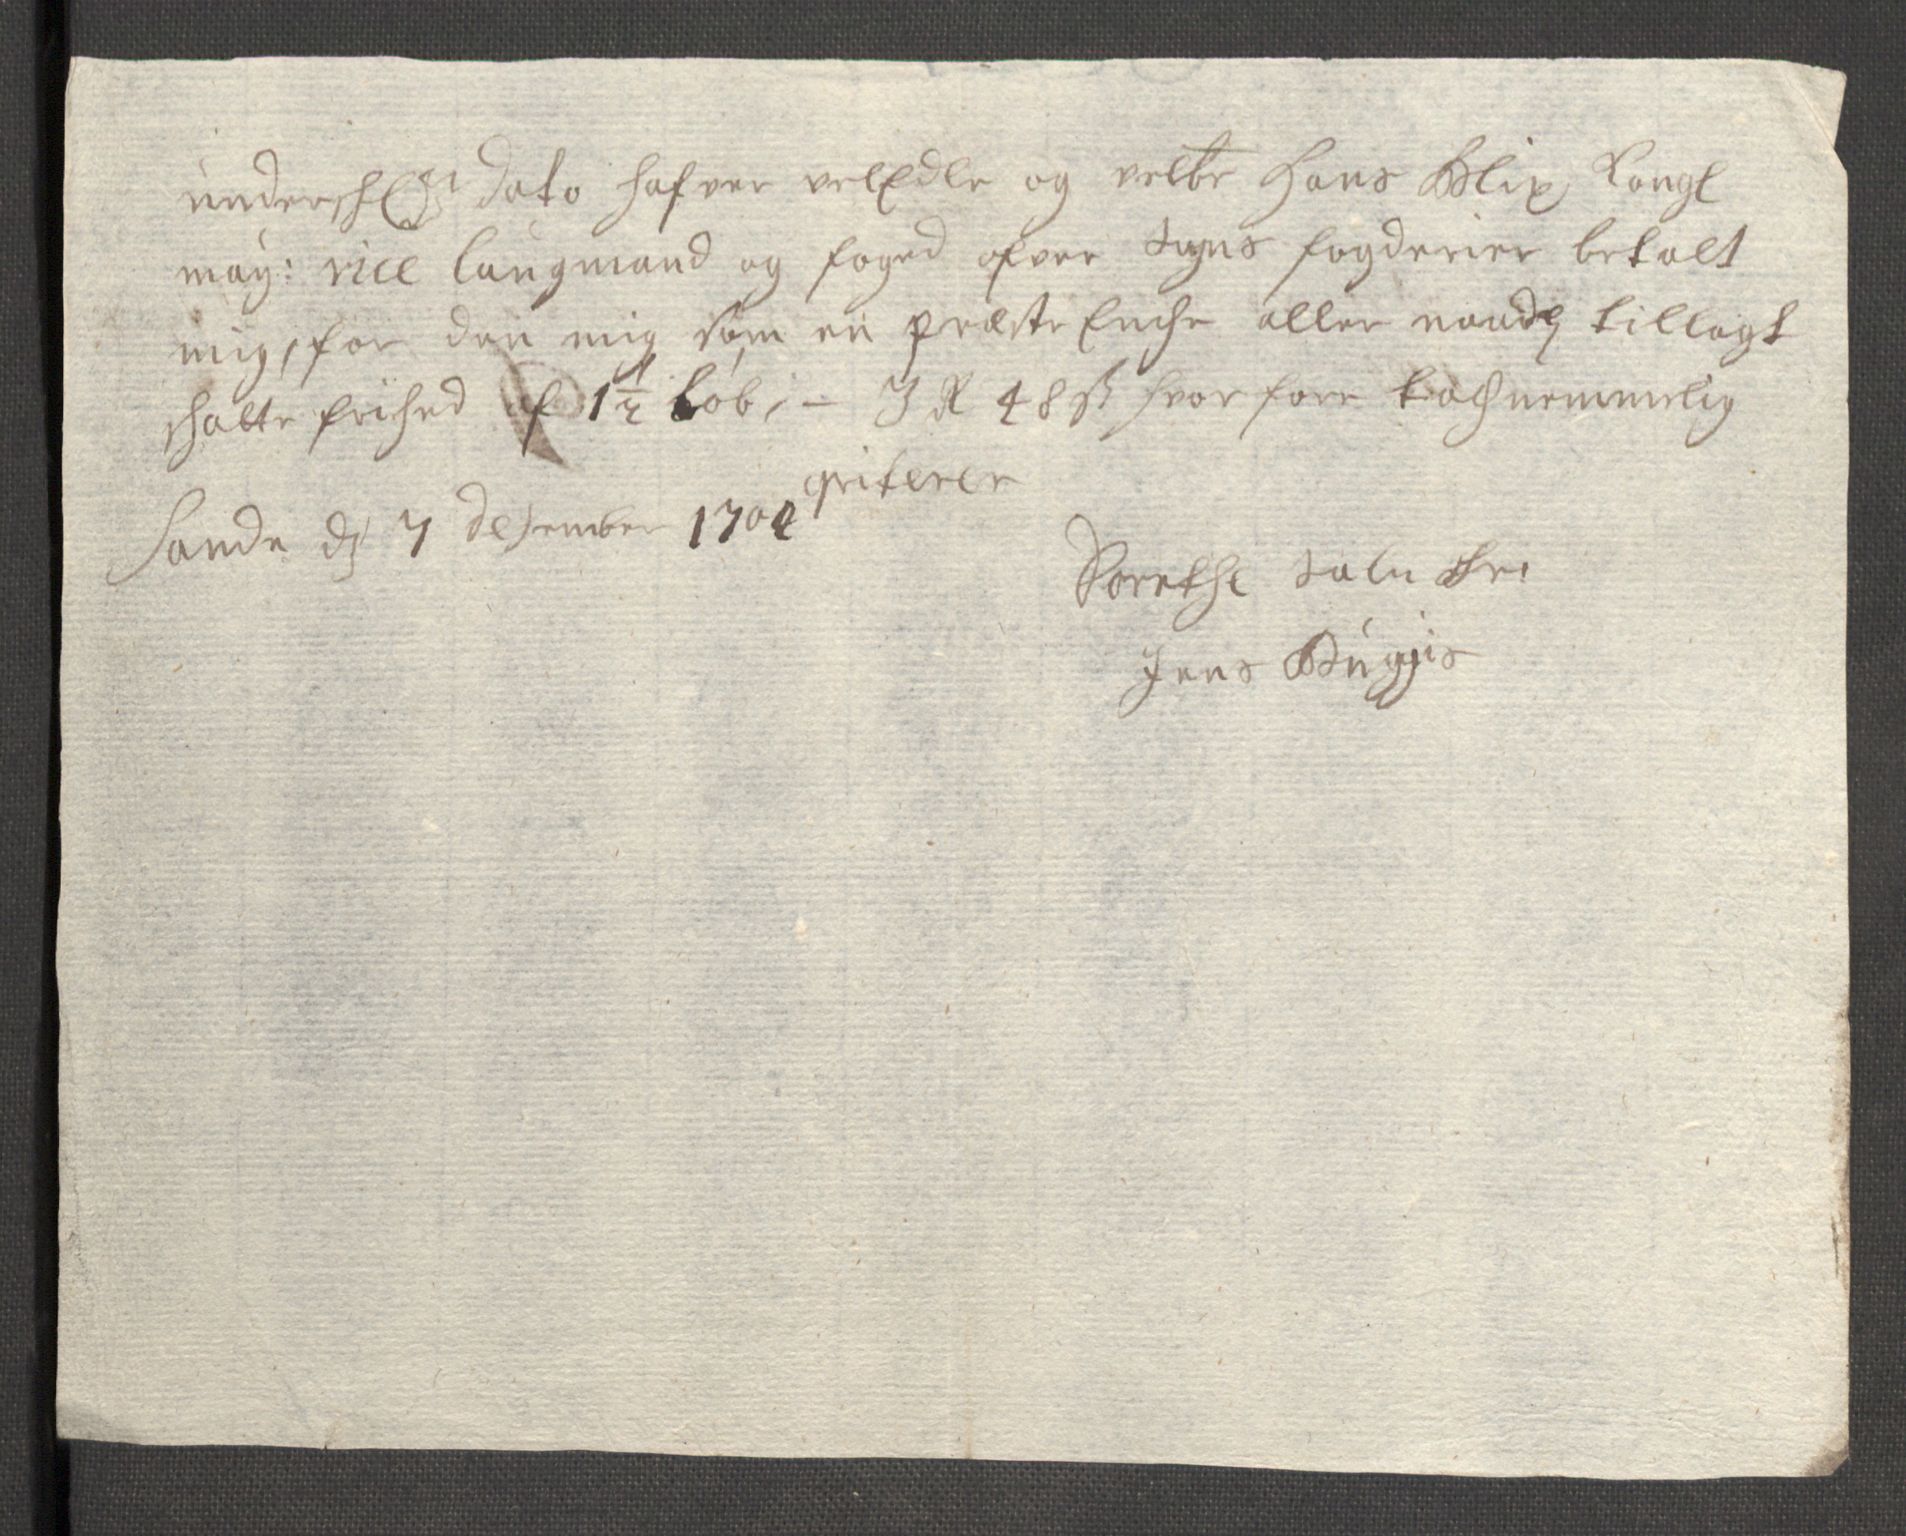 underschr: Dato hafver velEdle og velbr Hans Blix Kongl
may: vice laugmand og foged ofver Sogns fogderier betalt
mig, for den mig som en præste Enche aller naadl tillagt
schatte frihed af 1½ løb, – 3 R 48 ß hvorfore tachnemmelig
qviterer
Sande d 7 desember 1704
Dorethe Salu
Jens Bugges